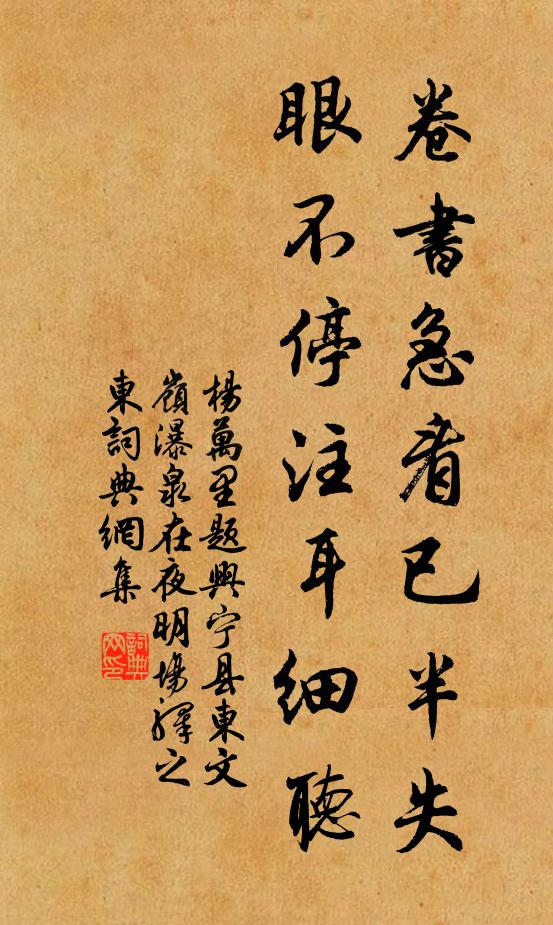 卷書急看已半失
眼不停注耳細聽
楊萬里題興宁县東文
嶺瀑泉在夜明場驛之
東詞典網集
詞典
网印